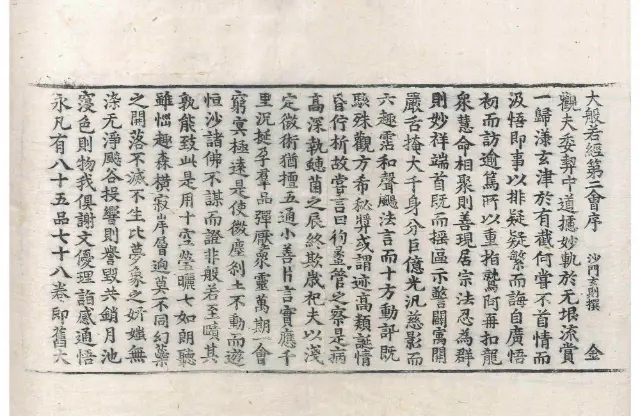 大般若經第二會序 沙門玄則撰 金
觀夫委契中道攄妙軌於无垠流賞
一歸濬玄津於有截何嘗不首情而
汲悟即事以排疑疑繁而誨自廣悟
初而訪逾篤所以重指鷲阿再扣龍
衆慧命相聚則善現居宗法忍為群
則妙祥端首既而摇區示警闢寓開
嚴舌掩大千身分巨億光汎慈影而
六趣霑和聲颺法言而十方動聽既
睽殊觀方希秘躅或謂迹高類誕情
昏佇析故嘗言曰徇萋管之察是病
高深執蟪菌之辰終欺歲杞夫以淺
定微術猶擅五通小善片言實應千
里况挺乎羣品彈壓衆靈萬期一會
窮冥極遠是使微塵刹土不動而遊
恒沙諸佛不謀而證非般若至賾其
孰能致此是用十零瑩曠七如朗聽
雖慍趣森横寂岸層迥莫不同幻蘂
之開落不滅不生比夢象之妍媸無
染无淨颺谷投響則譽毀共銷月池
寢色則物我俱謝文優理詣感通悟
永凡有八十五品七十八卷即舊大